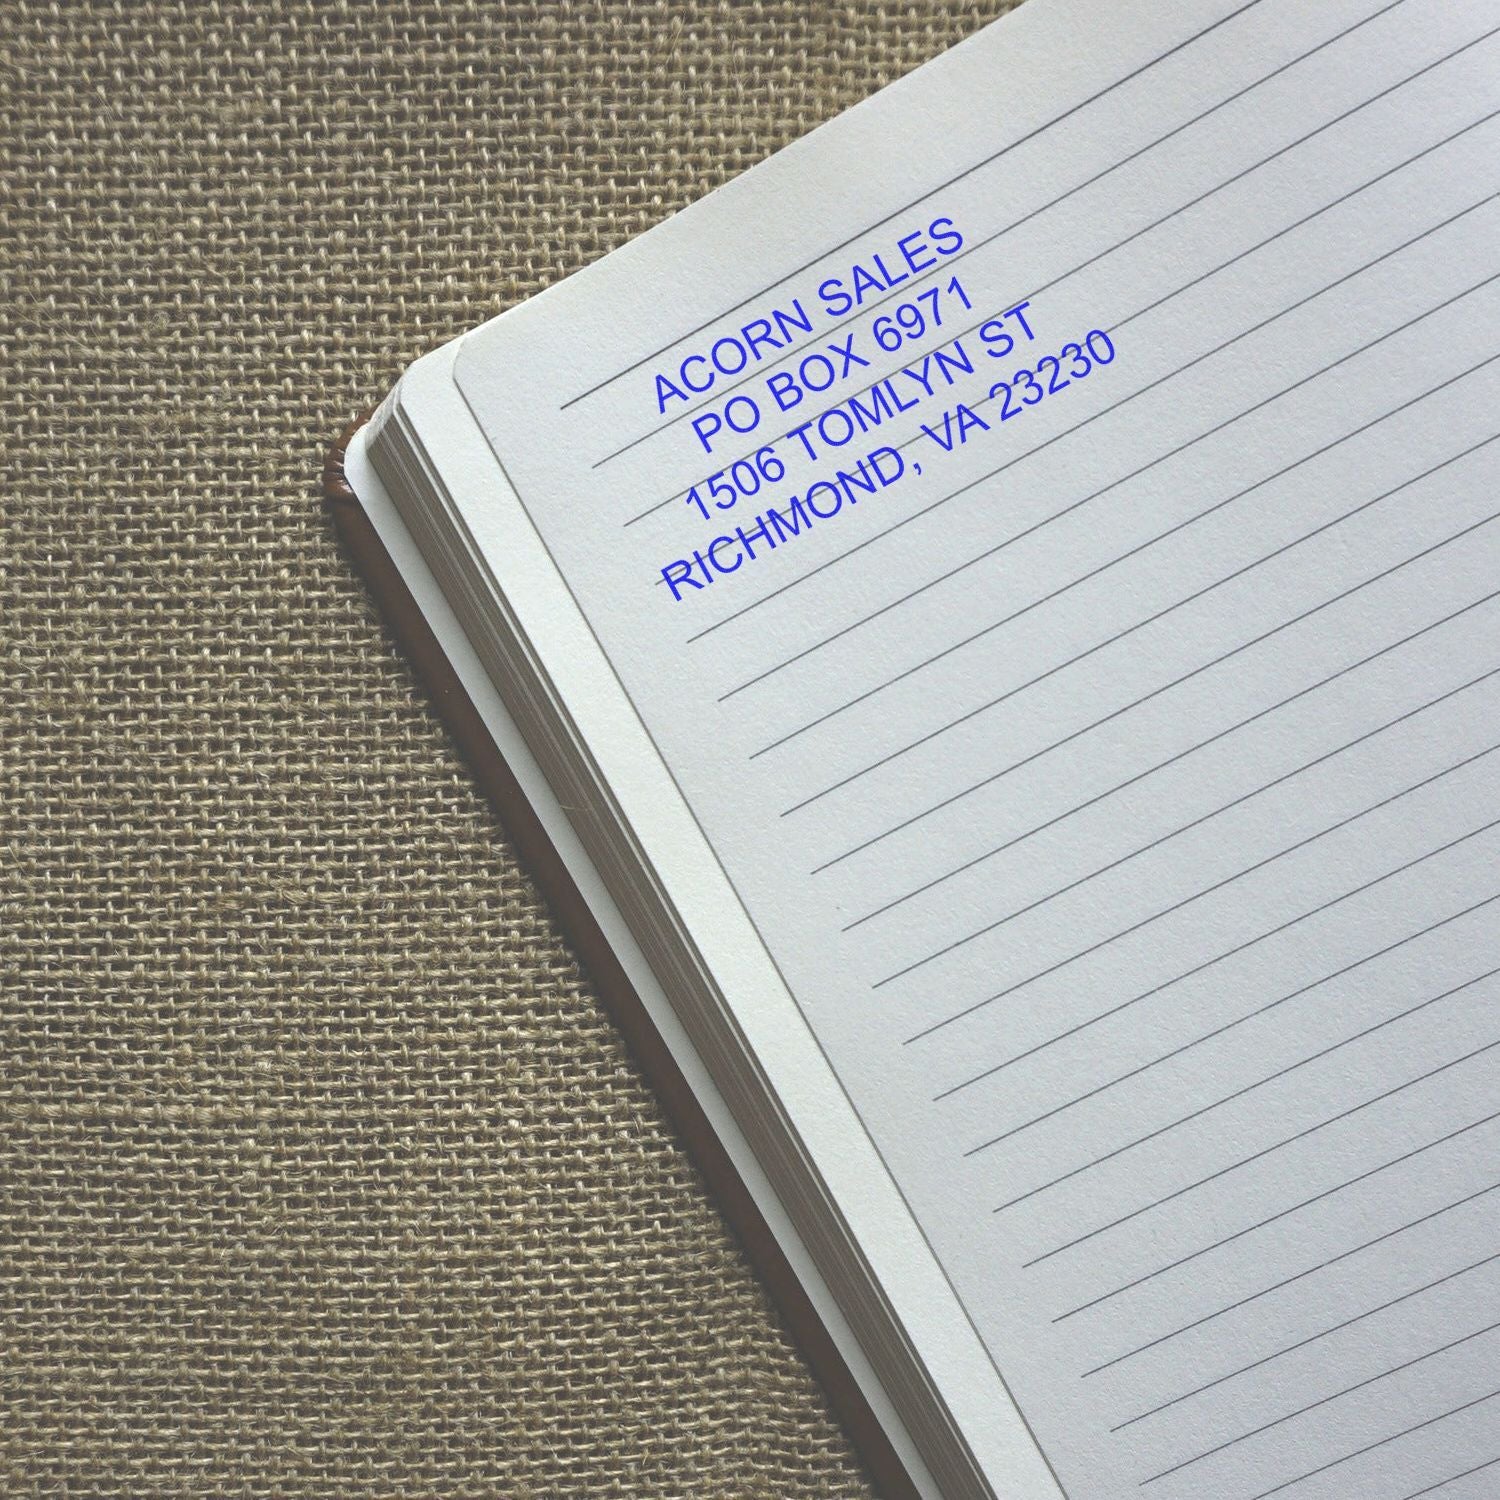 ACORN SALES
PO BOX 6971
1506 TOMLYN ST
RICHMOND, VA 23230